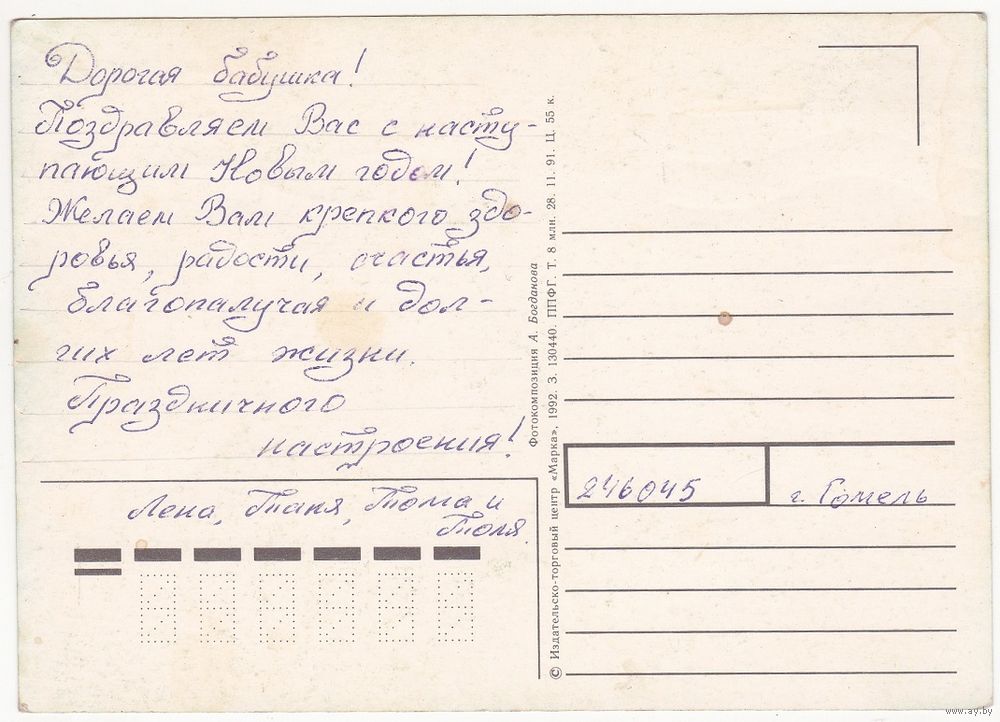 Дорогая бабушка!
Поздравляем Вас с насту-
пающим Новым годом!
Желаем Вам крепкого здо-
ровья, радости, счастья,
благопалучая и дол-
гих лет жизни.
Праздничного
настроения!
Лена, Таня, Тома и
Толя.
Фотокомпозиция А. Богданова
© Издательско-торговый центр «Марка», 1992. З. 130440. ППФГ. Т. 8 млн. 28. 11. 91. Ц. 55 к.
246045
г. Гомель
www.ay.by